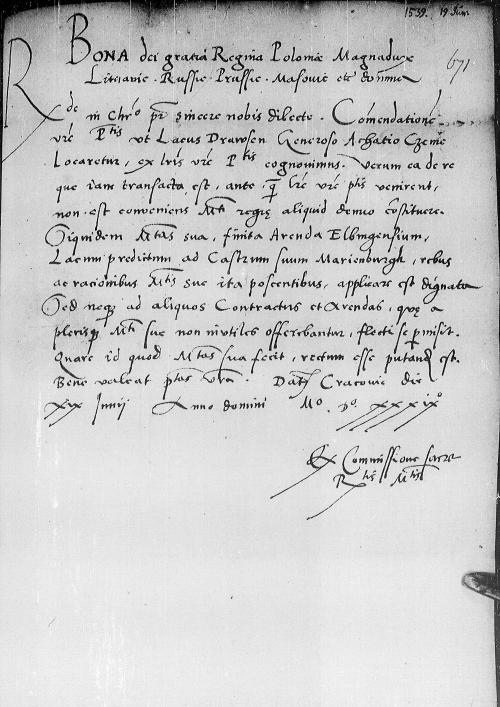 1539. 19 Jun.
671
BONA dei gratia Regina Polonie Magna dux
Lituanie. Russie. Prussie. Masovie etc domina
Rde in Chro pr sincere nobis dilecte. Comendatione
vre Ptis vt Lacus Drawsen Generoso Achatio Czeme
Locaretur, ex lris vre Ptis cognovimus. Verum ea de re
que iam transacta est, ante q lre vre ptis venirent,
non est conveniens Mti regie aliquid denuo costituere.
Siquidem Mtas sua, finita Arenda Elbingensium,
Lacum preditum ad Castrum suum Marienburgk, rebus
ac racionibus Mtis sue ita poscentibus, applicare est dignata
Sed neq ad aliquos Contractus et Arendas, que a
plerisq Mti sue non inutiles offerebantur, flecti se pmisit.
Quare id quod Mtas sua fecit, rectum esse putand est.
Bene valeat ptas vra. Dat Cracovie die
xix Junij Anno domini Mo. Do. xxxixo
Ex Commissione sacre
Rtis Mtis